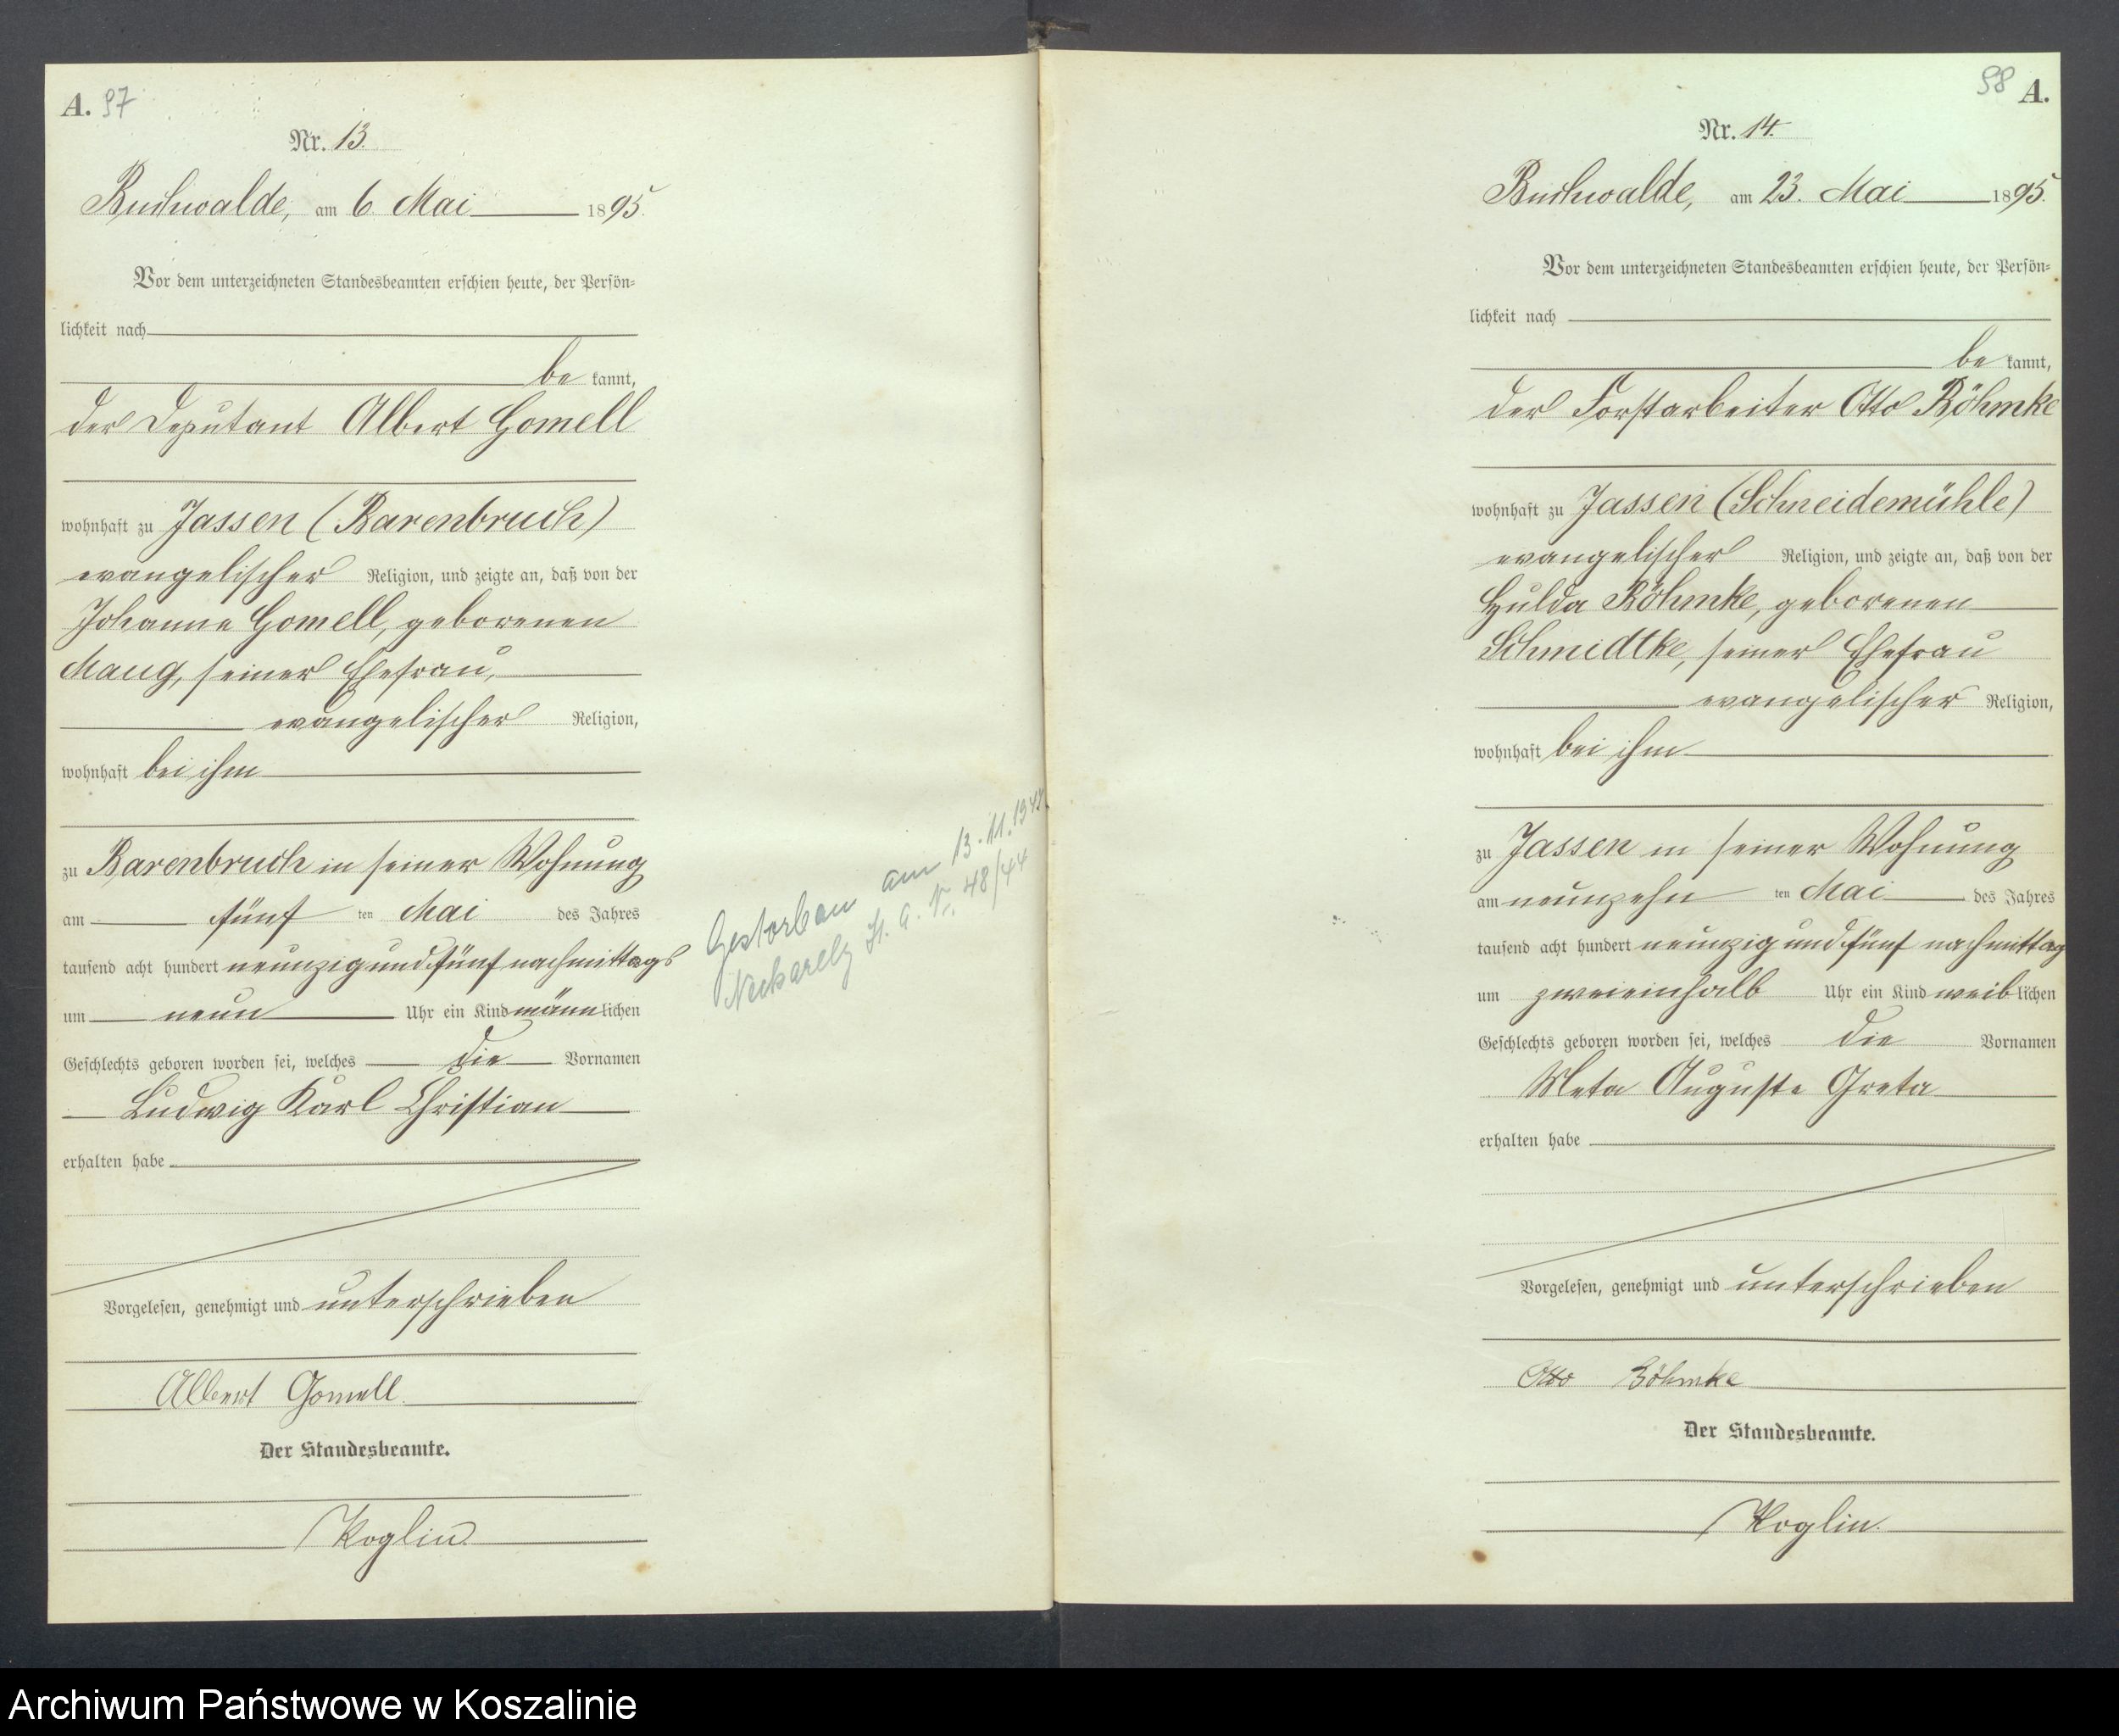 A. 97
Nr. 13.
Buchwalde, am 6. Mai 1895.
Vor dem unterzeichneten Standesbeamten erschien heute, der Persön-
lichkeit nach
be kannt,
der Deputant Albert Gomell
wohnhaft zu Jassen (Barenbruch)
evangelischer Religion, und zeigte an, daß von der
Johanne Gomell, geborenen
Maug, seiner Ehefrau,
evangelischer Religion,
wohnhaft bei ihm
zu Barenbruch in seiner Wohnung
am fünf ten Mai des Jahres
tausend acht hundert neunzig und fünf nachmittags
um neun Uhr ein Kind männlichen
Geschlechts geboren worden sei, welches die Vornamen
Ludwig Karl Christian
erhalten habe
Vorgelesen, genehmigt und unterschrieben
Albert Gomell
Der Standesbeamte.
Koglin.
Gestorben am 13.11.
Neckarelz St. A. Nr. 48/44
98 A.
Nr. 14.
Buchwalde, am 23. Mai 1895.
Vor dem unterzeichneten Standesbeamten erschien heute, der Persön-
lichkeit nach
be kannt,
der Forstarbeiter Otto Böhmke
wohnhaft zu Jassen (Schneidemühle)
evangelischer Religion, und zeigte an, daß von der
Hulda Böhmke, geborenen
Schmidtke, seiner Ehefrau
evangelischer Religion,
wohnhaft bei ihm
zu Jassen in seiner Wohnung
am neunzehn ten Mai des Jahres
tausend acht hundert neunzig und fünf nachmittag
um zweieinhalb Uhr ein Kind weiblichen
Geschlechts geboren worden sei, welches die Vornamen
Meta Auguste Greta
erhalten habe
Vorgelesen, genehmigt und unterschrieben
Otto Böhmke
Der Standesbeamte.
Koglin.
Archiwum Państwowe w Koszalinie